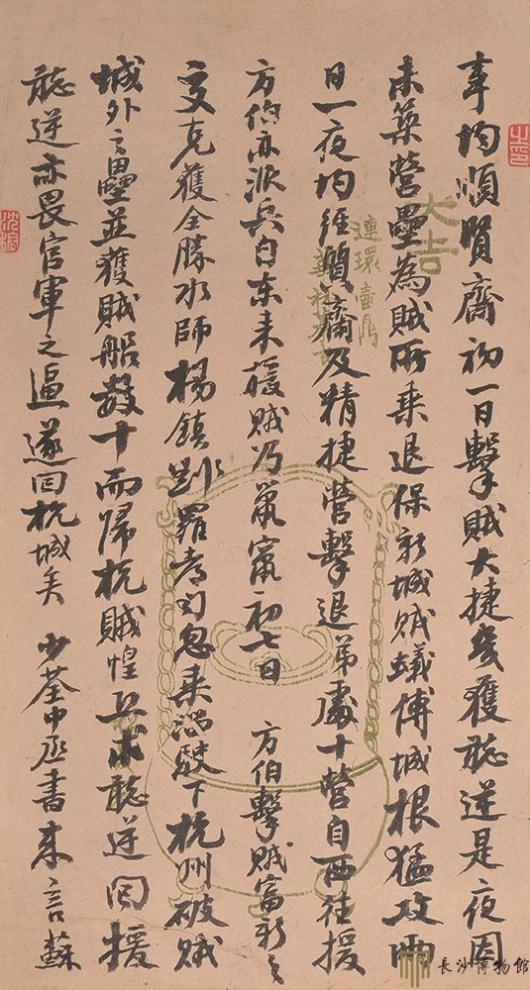 事均順賢齋初一日擊賊大捷幾獲聽逆是夜因
未築營壘為賊所乘退保新城賊蟻傅城根猛攻兩
日一夜均經賢齋及精捷營擊退弟處十營自西往援
方伯亦派兵自東來援賊乃鼠竄初七日 方伯擊賊富新之
交克獲全勝水師楊鎮忽乘潮駛下杭州破賊
城外之壘並獲賊船數十而歸杭賊惶亟求聽逆回援
聽逆亦畏官軍之逼遂回杭城矣 少荃中丞書來言蘇
大吉
連環壺
之印
長沙博物館